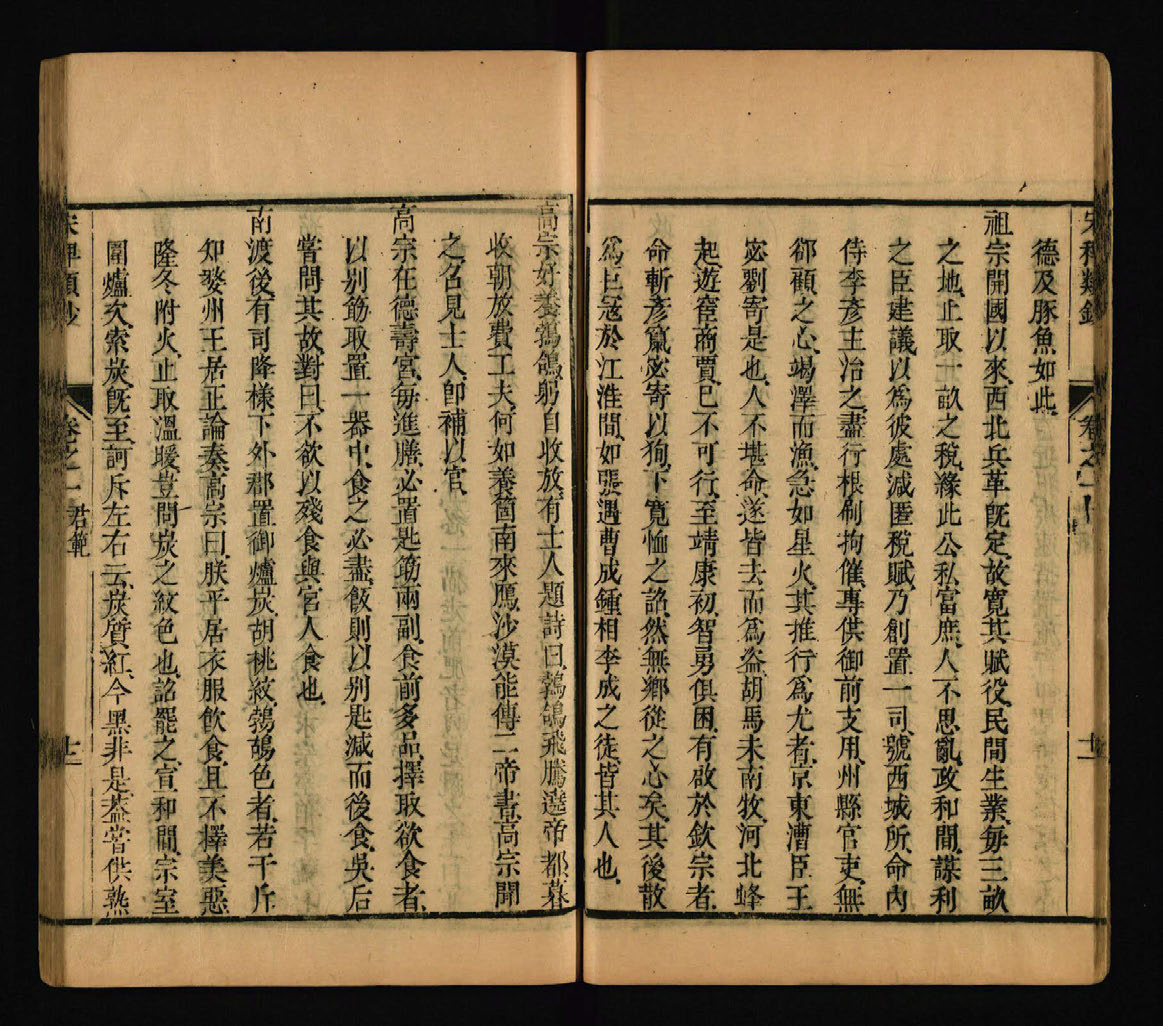 宋稗類鈔
卷之一
十一
德及豚魚如此
祖宗開國以來西北兵革旣定故寬其賦役民間生業每三畝
之地止取一畝之稅緣此公私富庶人不思亂政和間謀利
之臣建議以爲彼處減匿稅賦乃創置一司號西城所命內
侍李彥主治之盡行根刷拘催專供御前支用州縣官吏無
䘏顧之心竭澤而漁急如星火其推行爲尤者京東漕臣王
宓劉寄是也人不堪命遂皆去而爲盜胡馬未南牧河北蜂
起遊宦商賈已不可行至靖康初智勇俱困有啟於欽宗者
命斬彥竄宓寄以狥下寬恤之詔然無鄉從之心矣其後散
爲巨寇於江淮間如張遇曹成鍾相李成之徒皆其人也
高宗好養鵓鴿躬自收放有士人題詩曰鵓鴿飛騰遶帝都暮
收朝放費工夫何如養箇南來鴈沙漠能傳二帝書高宗聞
之召見士人卽補以官
高宗在德壽宮每進膳必置匙筯兩副食前多品擇取欲食者
以别筯取置一器中食之必盡飯則以别匙減而後食吳后
嘗問其故對曰不欲以殘食與宮人食也
南渡後有司降樣下外郡置御爐炭胡桃紋鵓鴿色者若干斤
知婺州王居正論奏高宗曰朕平居衣服飲食且不擇美惡
隆冬附火止取溫暖豈問炭之紋色也詔罷之宣和間宗室
圍爐次索炭旣至訶斥左右云炭質紅今黑非是葢嘗供熟
宋稗類鈔
卷之一
君範
十二